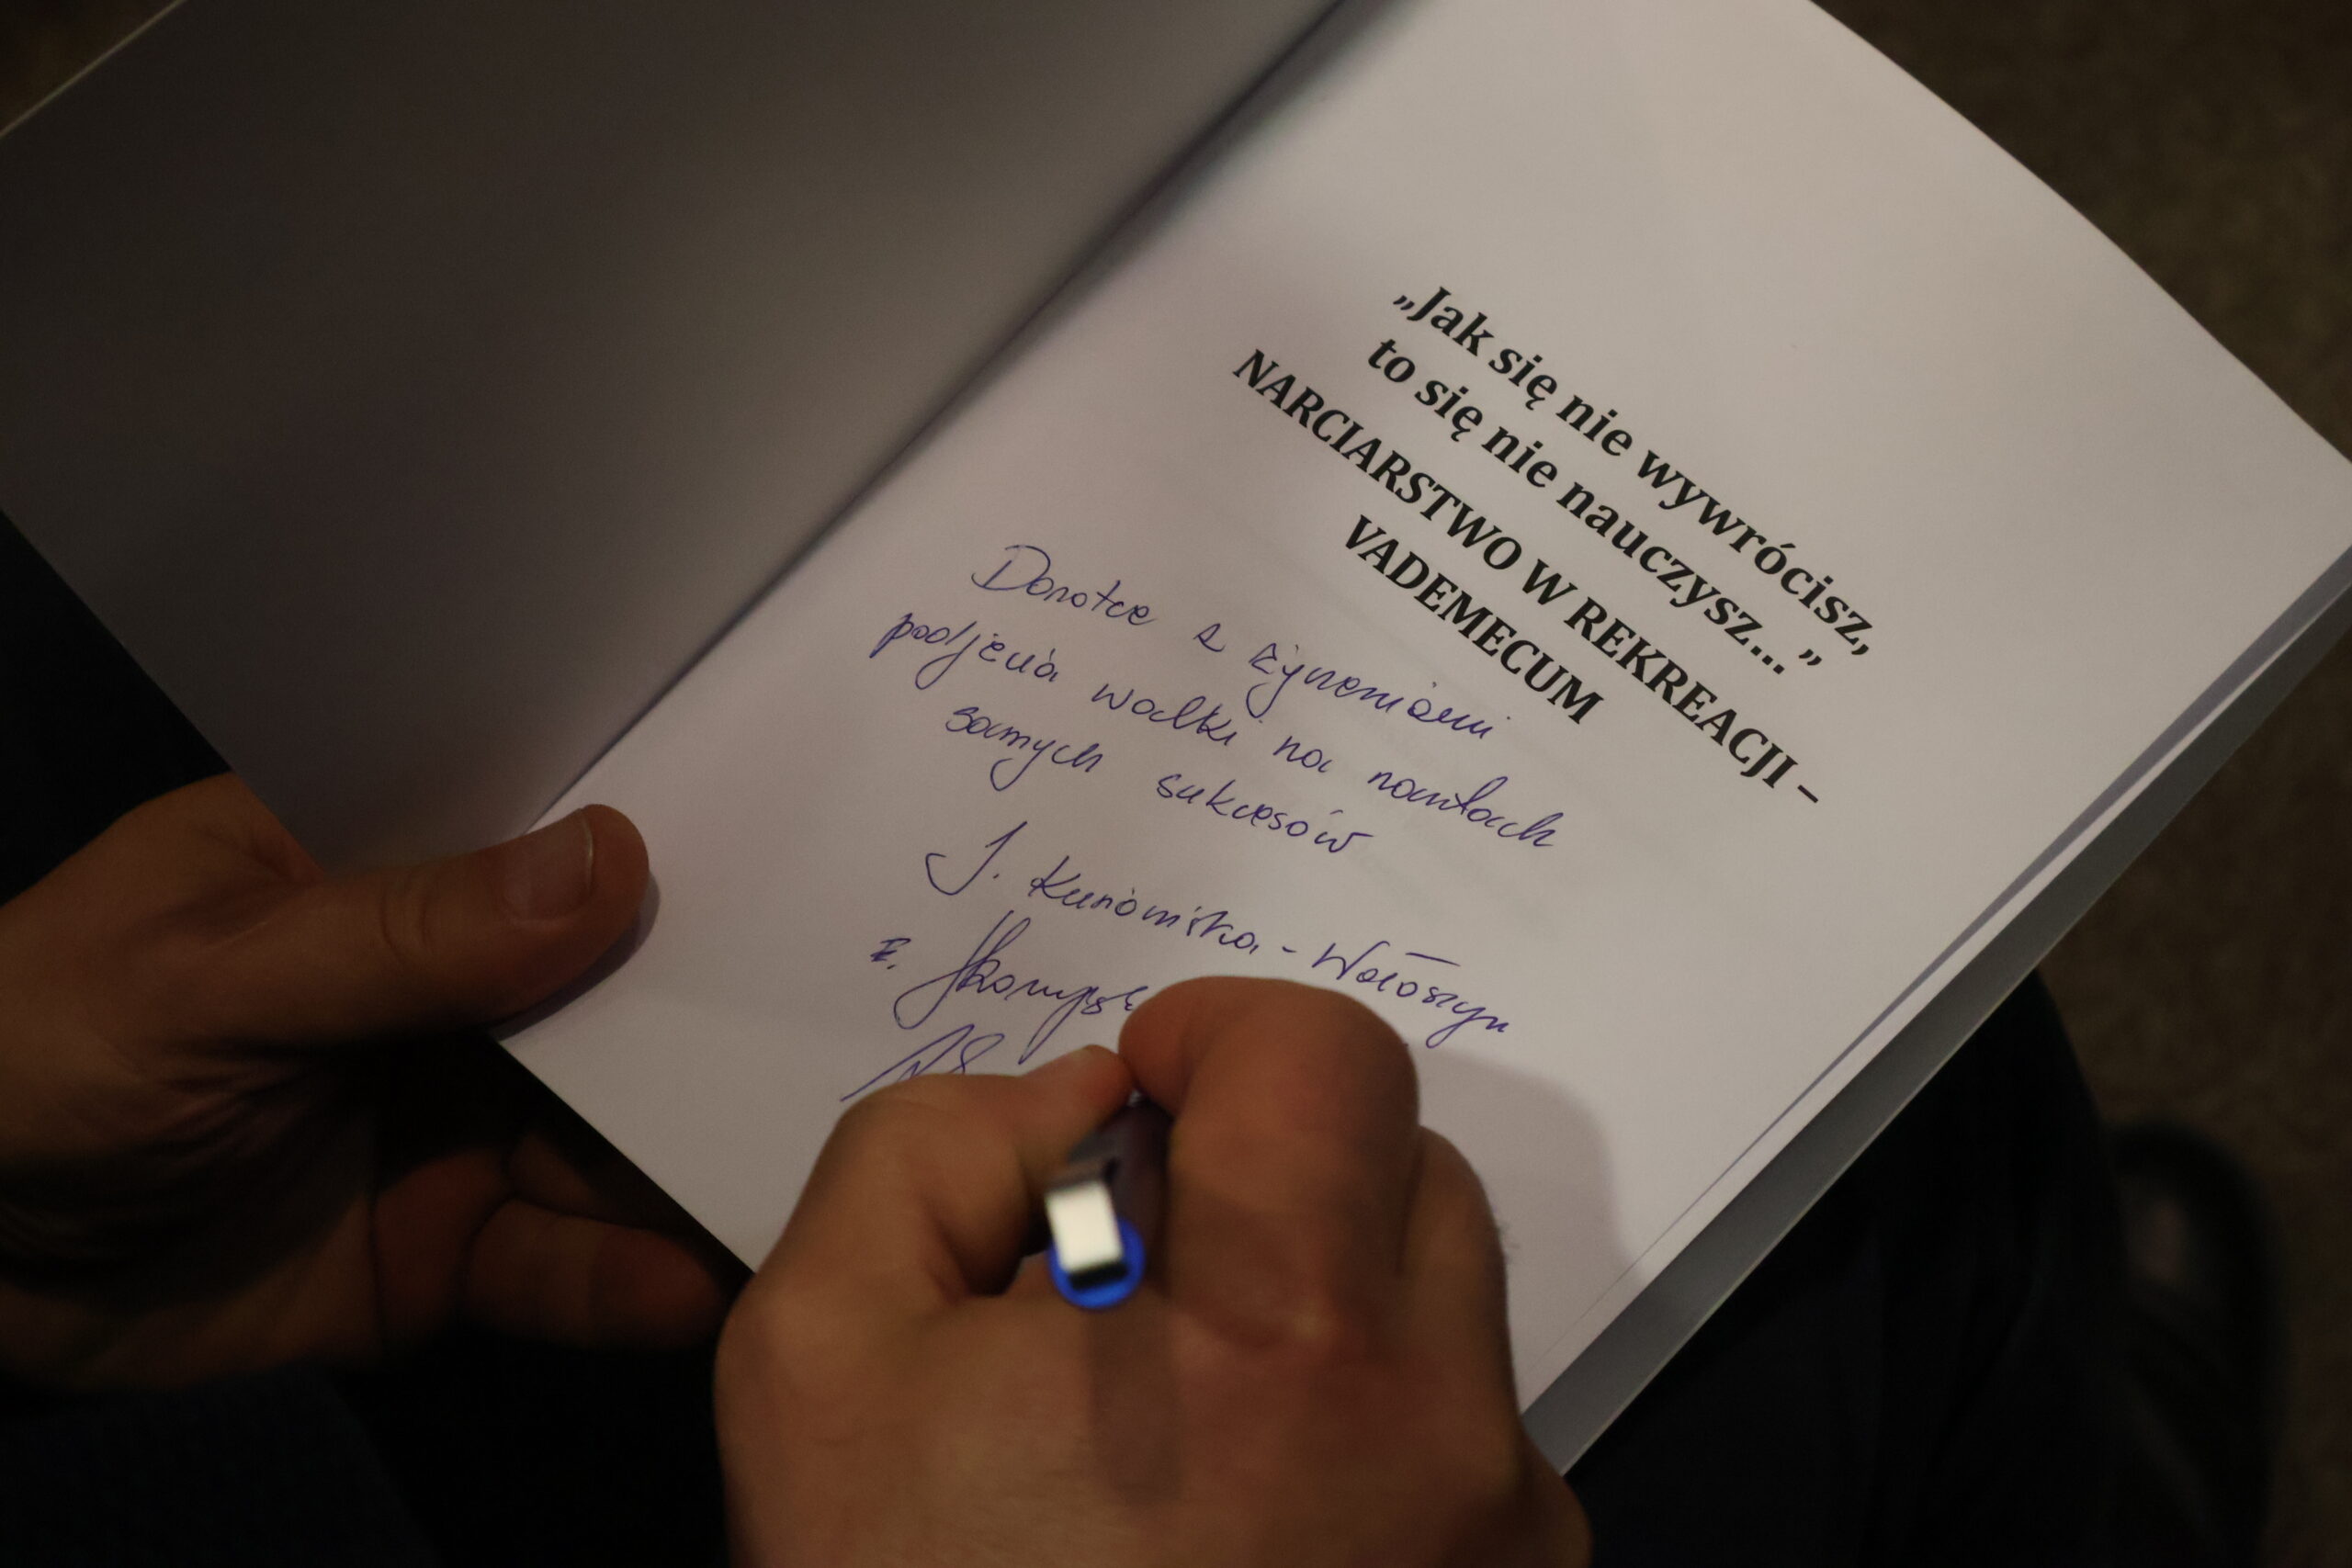 „Jak się nie wywrócisz,
to się nie nauczysz...”
NARCIARSTWO W REKREACJI –
VADEMECUM
Dorotce z życzeniami
podjęcia walki na nartach
samych sukcesów
J. Kunowska-Wołoszyn